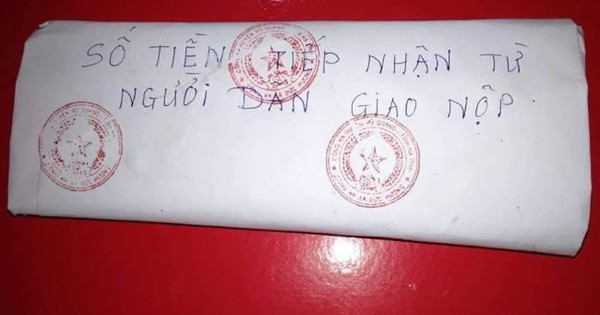 SỐ TIỀN TIẾP NHẬN TỪ
NGƯỜI DÂN GIAO NỘP.